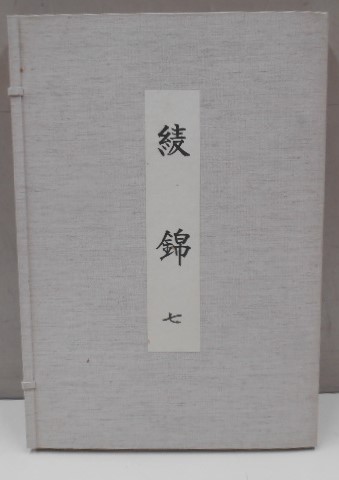 綾錦 七